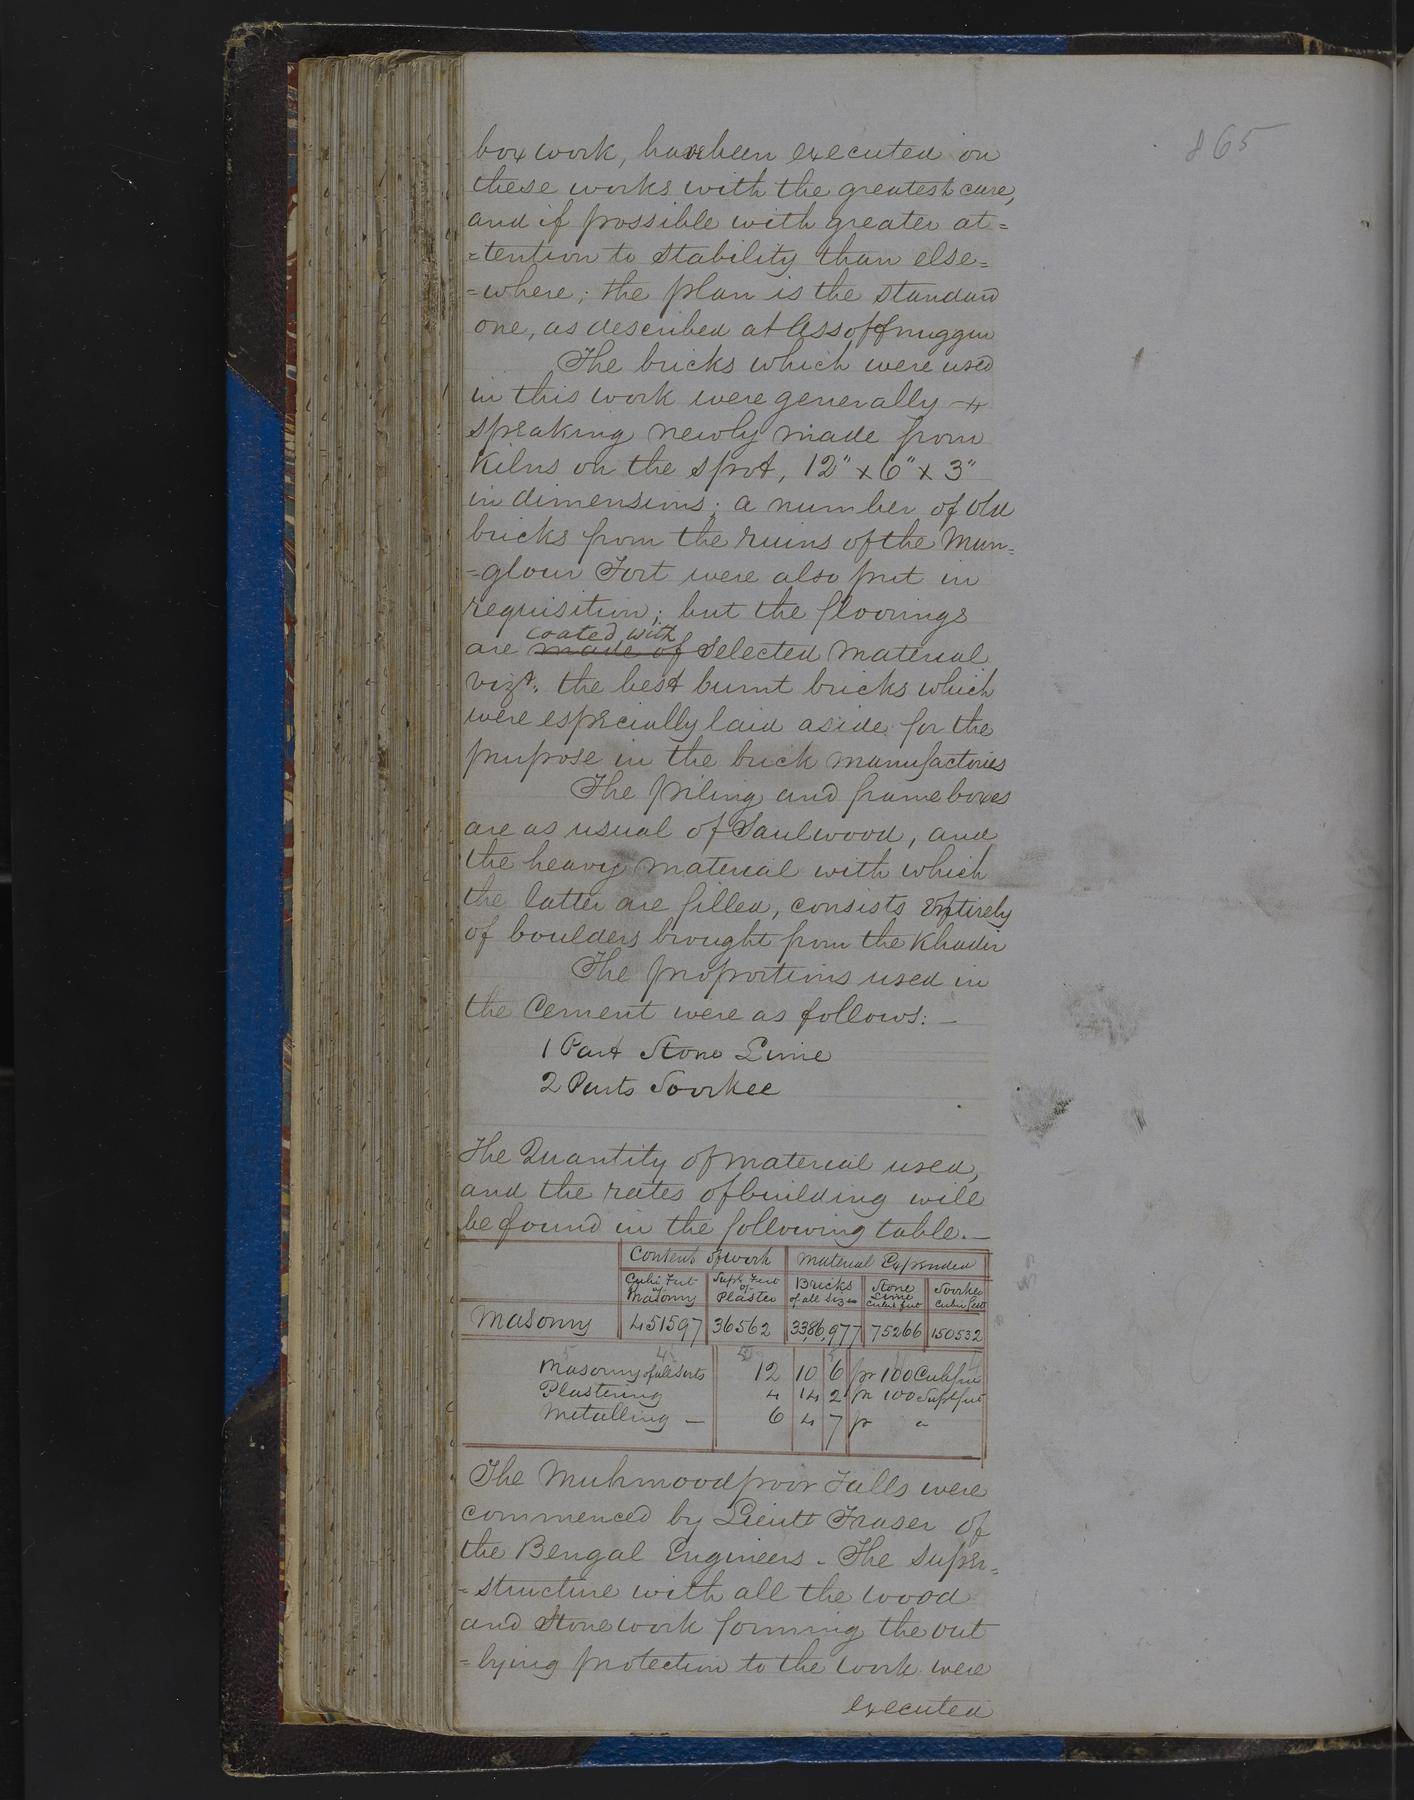 865
box work, have been executed on
these works with the greatest care,
and if possible with greater at=
=tention to stability than else=
=where; the plan is the standard
one, as described at Assoffnuggur
The bricks which were used
in this work were generally
speaking newly made from
Kilns on the spot, 12" x 6" x 3"
in dimensions; a number of old
bricks from the ruins of the Mun=
=glour Fort were also put in
requisition; but the floorings
coated with
are made of selected material
vizt. the best burnt bricks which
were especially laid aside for the
purpose in the brick manufactories
The piling and frame boxes
are as usual of Saulwood, and
the heavy material with which
the latter are filled, consists entirely
of boulders brought from the Khadir
The proportions used in
the Cement were as follows:—
1 Part Stone Lime
2 Parts Soorkee
The Quantity of material used,
and the rates of building will
be found in the following table.—
Content of work Material Expended
Cubic Feet of Masonry Supl. Feet of Plaster Bricks of all sizes Stone Lime Cubic feet Soorkee Cubic feet
Masonry 451597 36562 3386,977 75266 150532
Masonry of all sorts 12 10 6 pr 100 Cub feet
Plastering 4 14 2 pr 100 Supl feet
Metalling — 6 4 7 pr "
The Muhmoodpoor Falls were
commenced by Lieutt Fraser of
the Bengal Engineers. The Super=
=structure with all the wood
and Stone work forming the out
=lying protection to the work were
executed